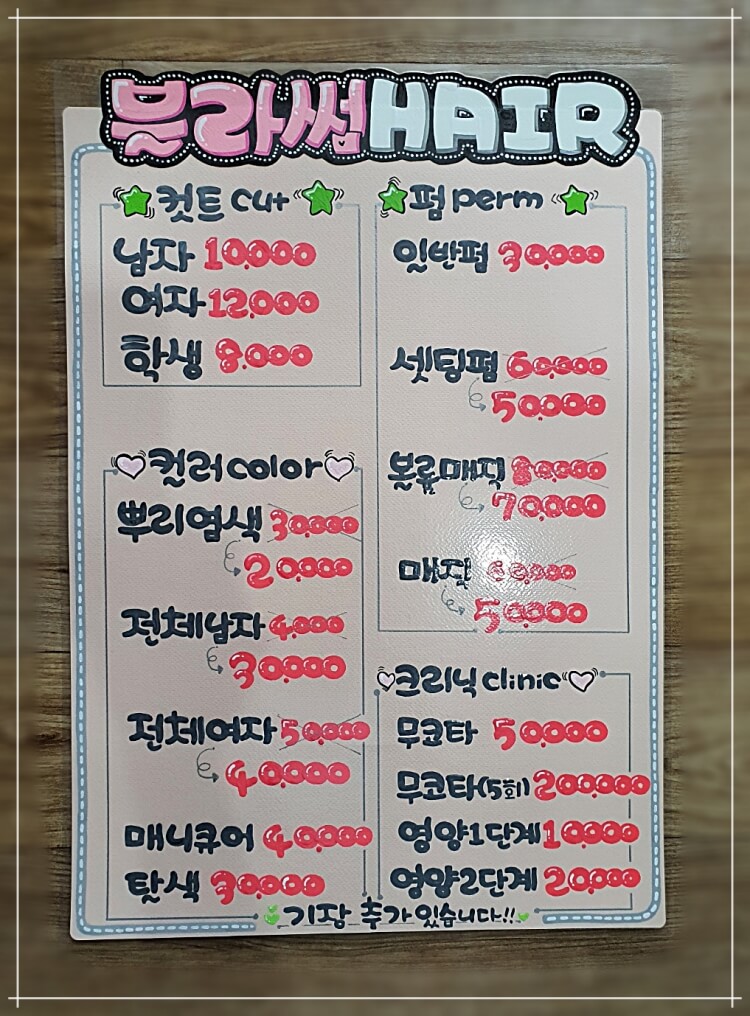 블라썸HAIR
컷트 cut
남자 10.000
여자 12.000
학생 8.000
컬러 color
뿌리염색 30.000
20.000
전체남자 4.000
30.000
전체여자 50.000
40.000
매니큐어 40.000
탈색 30.000
펌 perm
일반펌 30.000
셋팅펌 60.000
50.000
볼륨매직 80.000
70.000
매직 60.000
50.000
크리닉 clinic
무코타 50.000
무코타(5회) 200.000
영양1단계 10.000
영양2단계 20.000
기장 추가 있습니다!!